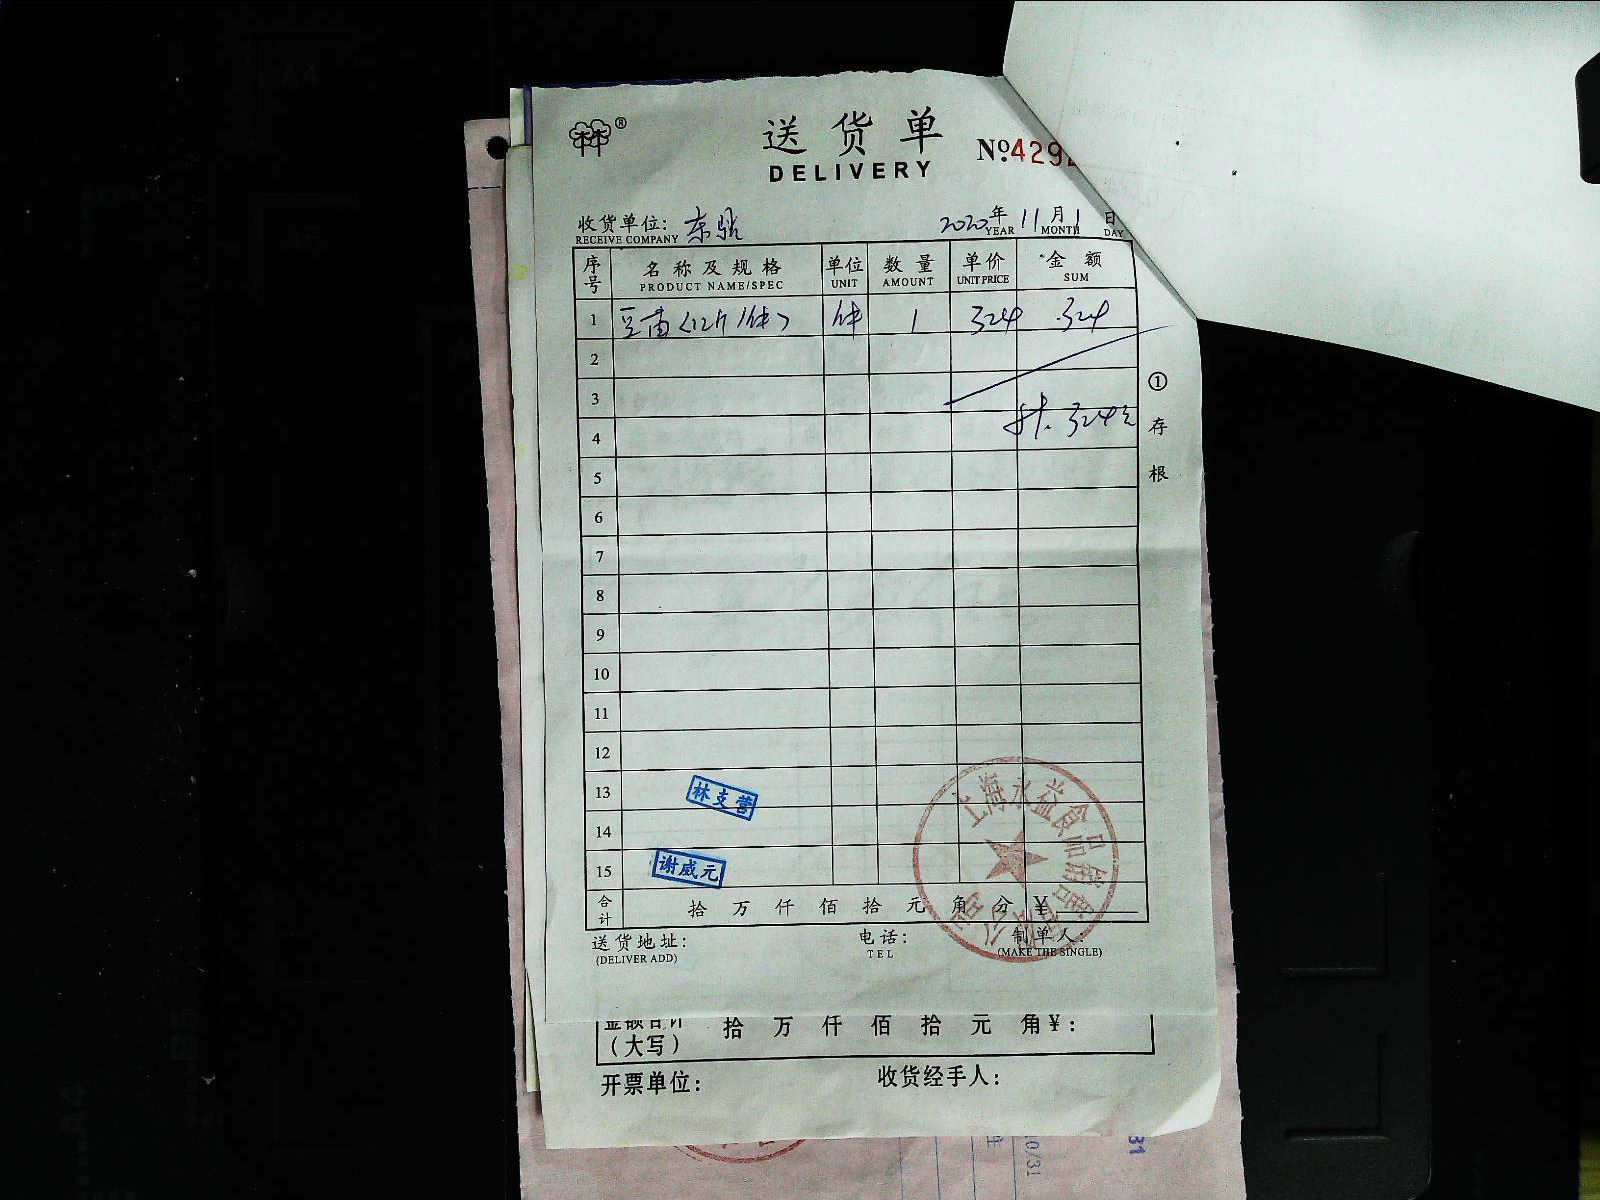 林®
送货单
DELIVERY
№429
收货单位:
RECEIVE COMPANY
2020年 11月 1日
YEAR MONTH DAY
序号 名称及规格 单位 数量 单价 金额
PRODUCT NAME/SPEC UNIT AMOUNT UNIT PRICE SUM
1 豆苗 1 324 324
2
3
4 共.324元
5
6
7
8
9
10
11
12
13 林支营
14
15 谢威元
合计 拾 万 仟 佰 拾 元 角 分 ¥
①存根
上海永益食品销售有限公司
送货地址: 电话: 制单人:
(DELIVER ADD) TEL (MAKE THE SINGLE)
金额合计 拾 万 仟 佰 拾 元 角¥:
(大写)
开票单位: 收货经手人:
10/31
31
A4
B5